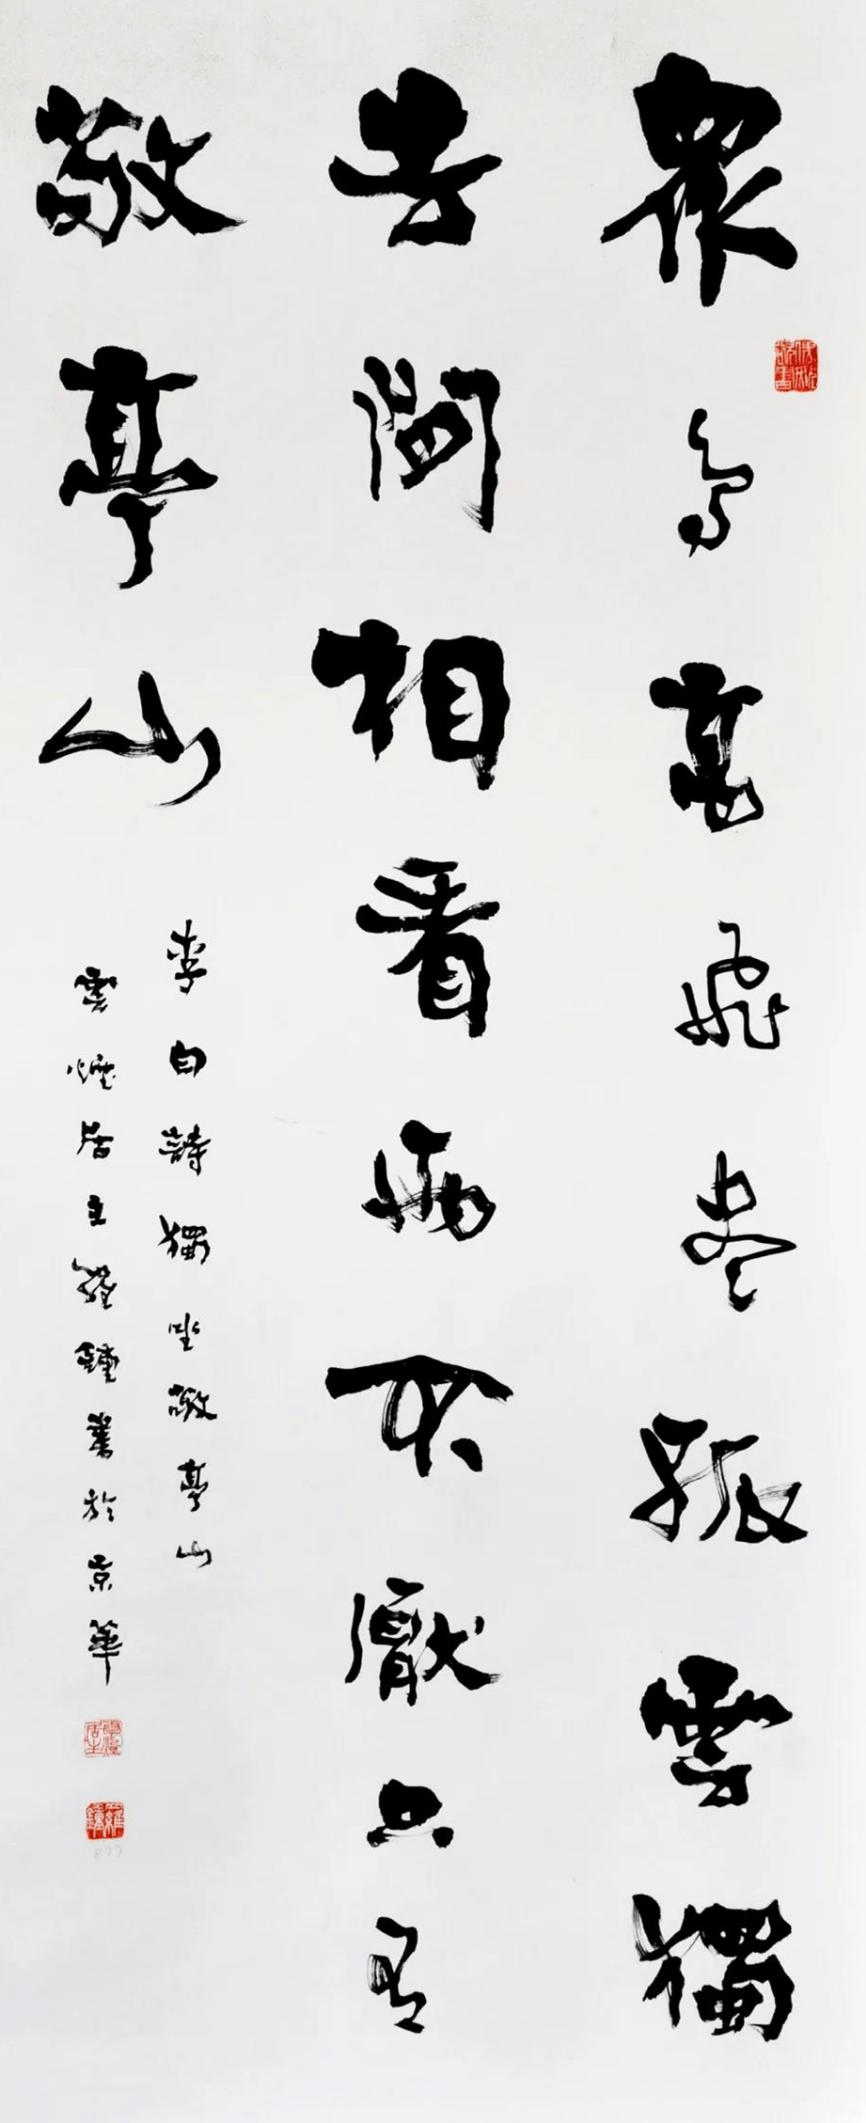 眾鳥高飛盡孤雲獨
去閒相看兩不厭只有
敬亭山
李白詩獨坐敬亭山
雲煙居主羅鍾書於京華
雲煙居主
羅鍾